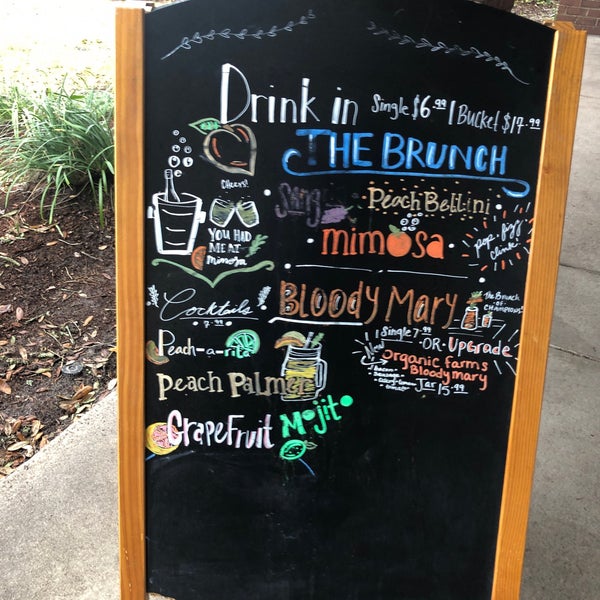 Drink in Single $6.99 / Bucket $17.99
THE BRUNCH
CHEERS!
Peach Bellini
YOU HAD
ME AT
mimosa
mimosa
pop · fizz
clink
Cocktails
7.99
BLOODY MARY
The Brunch
-OF-
CHAMPIONS!
1 Single 7.99
-OR- UPGRADE
Peach-a-rita
Organic farms
Bloody mary
Jar 15.99
· bacon
· sausage
Peach Palmer
GrapeFruit Mojito